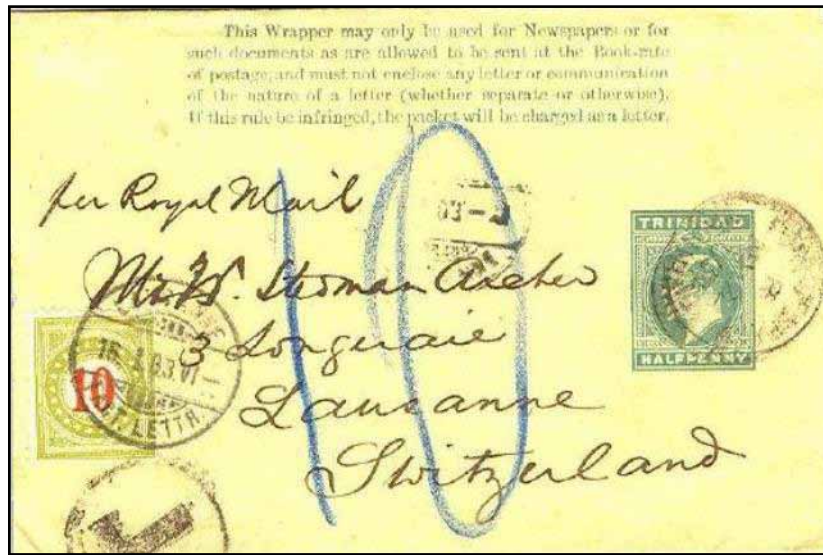 This Wrapper may only be used for Newspapers or for
such documents as are allowed to be sent at the Book-rate
of postage, and must not enclose any letter or communication
of the nature of a letter (whether separate or otherwise).
If this rule be infringed, the packet will be charged as a letter.
per Royal Mail
10
03
TRINIDAD
HALFPENNY
Mr. W. Stedman Archer
3 Longeraie
Lausanne
Switzerland
10
16. I. 03. VI
LETTR.
T